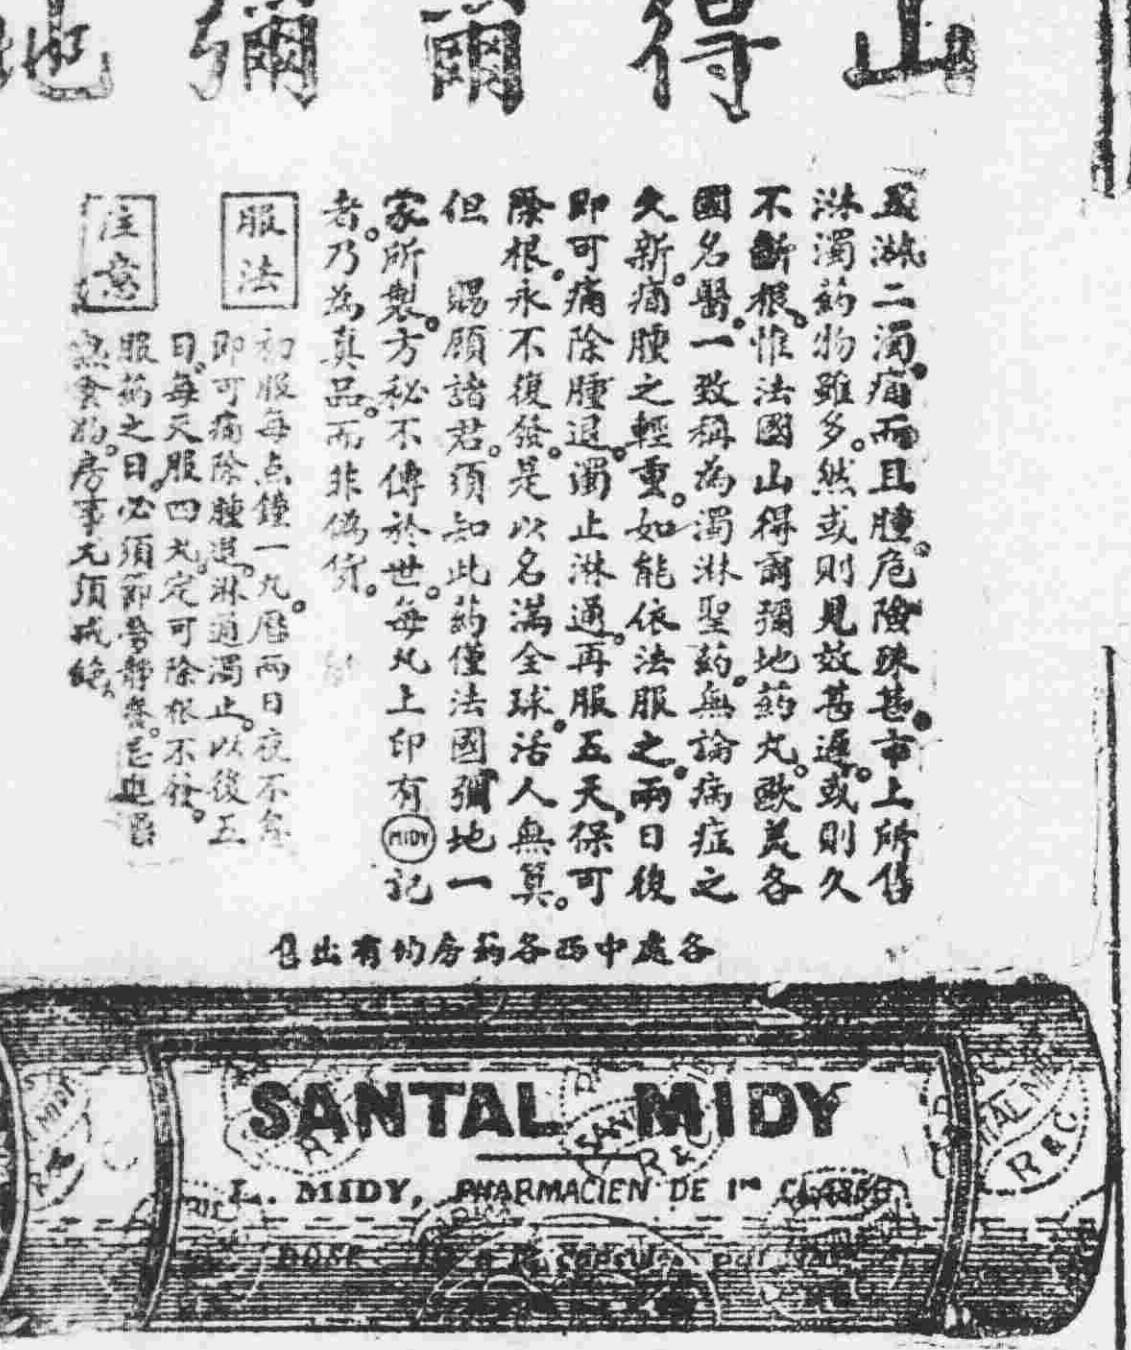 山得爾彌地
淋二濁痛而且腫危險殊甚市上所售
淋濁葯物雖多然或則見效甚遲或則久
不斷根惟法國山得爾彌地葯丸歐美各
國名醫一致稱為濁淋聖葯無論病症之
久新痛腫之輕重如能依法服之兩日後
即可痛除腫退濁止淋通再服五天保可
除根永不復發是以名滿全球活人無算
但 賜顧諸君須知此葯僅法國彌地一
家所製方秘不傳於世每丸上印有MIDY記
者乃為真品而非偽貨
服法
初服每点鐘一丸曆兩日夜不
即可痛除腫退淋通濁止以後五
日每天服四丸定可除根不發
注意
服葯之日必須節勞靜養忌
熱食物房事尤須戒絕
各處中西各葯房均有出售
SANTAL MIDY
L. MIDY, PHARMACIEN DE 1re CLASSE
DOSE
R & C
R & C